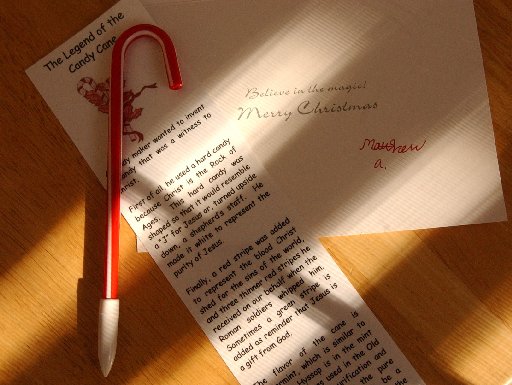 The Legend of the
Candy Cane
maker wanted to invent
that was a witness to
First of all he used a hard candy
because Christ is the Rock of
Ages. This hard candy was
shaped so that it would resemble
a "J" for Jesus or, turned upside
down, a shepherd's staff. He
made it white to represent the
purity of Jesus.
Finally, a red stripe was added
to represent the blood Christ
shed for the sins of the world,
and three thinner red stripes he
received on our behalf when the
Roman soldiers whipped him.
Sometimes a green stripe is
added as reminder that Jesus is
a gift from God.
The flavor of the cane is
which is similar to
Hyssop is in the mint
was used in the Old
purification and
the pure
be a
Believe in the magic!
Merry Christmas
Matthew
a.